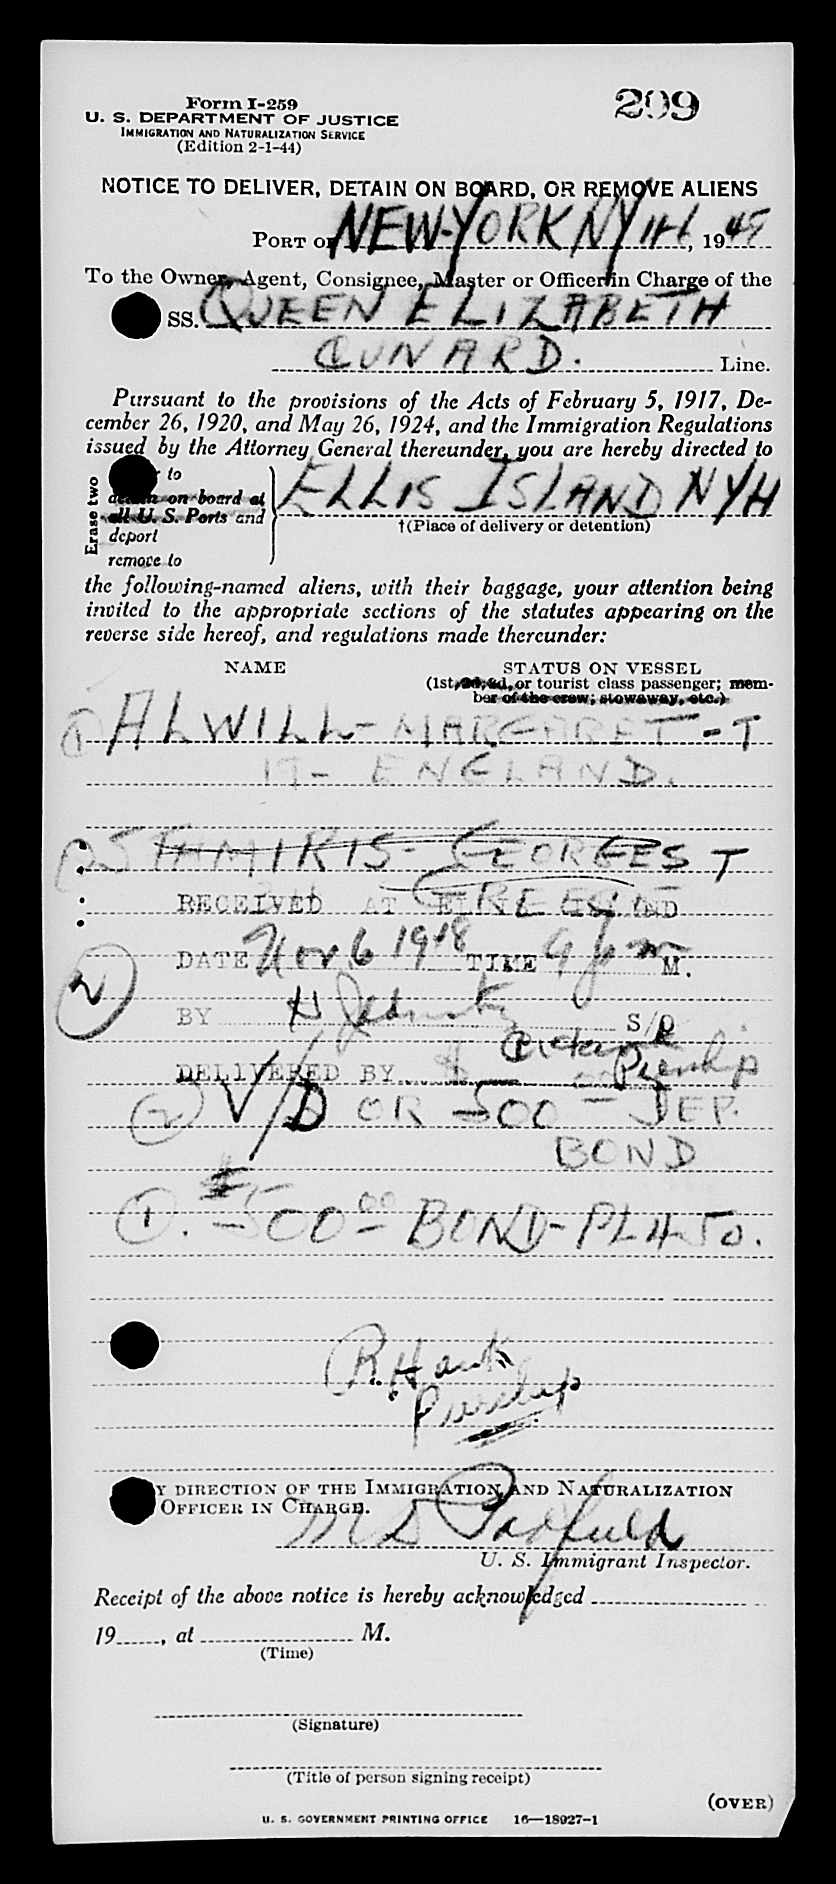 Form I-259
U. S. DEPARTMENT OF JUSTICE
IMMIGRATION AND NATURALIZATION SERVICE
(Edition 2-1-44)
209
NOTICE TO DELIVER, DETAIN ON BOARD, OR REMOVE ALIENS
PORT OF NEW-YORK NY 11-6, 1948
To the Owner, Agent, Consignee, Master or Officer in Charge of the
SS. QUEEN ELIZABETH
CUNARD. Line.
Pursuant to the provisions of the Acts of February 5, 1917, De-
cember 26, 1920, and May 26, 1924, and the Immigration Regulations
issued by the Attorney General thereunder, you are hereby directed to
Erase two
to
detain on board at
all U. S. Ports and
deport
remove to
ELLIS ISLAND NYH
†(Place of delivery or detention)
the following-named aliens, with their baggage, your attention being
invited to the appropriate sections of the statutes appearing on the
reverse side hereof, and regulations made thereunder:
NAME STATUS ON VESSEL
(1st, 2d, 3d, or tourist class passenger; mem-
ber of the crew; stowaway, etc.)
① ALWILL - MARGARET - T
17 - ENGLAND.
STAMIRIS - GEORGES T
GREECE
RECEIVED AT ELLIS ISLAND
DATE Nov 6 1948 TIME 9 pm M.
2
BY S/O
DELIVERED BY
Piership
② V/D OR $500 00 DEP.
BOND
①. $500 00 BOND - PL 4-50.
R. Hauk
Piership
BY DIRECTION OF THE IMMIGRATION AND NATURALIZATION
OFFICER IN CHARGE.
M D Padfield
U. S. Immigrant Inspector.
Receipt of the above notice is hereby acknowledged
19, at M.
(Time)
(Signature)
(Title of person signing receipt)
(OVER)
U. S. GOVERNMENT PRINTING OFFICE 16—18927-1